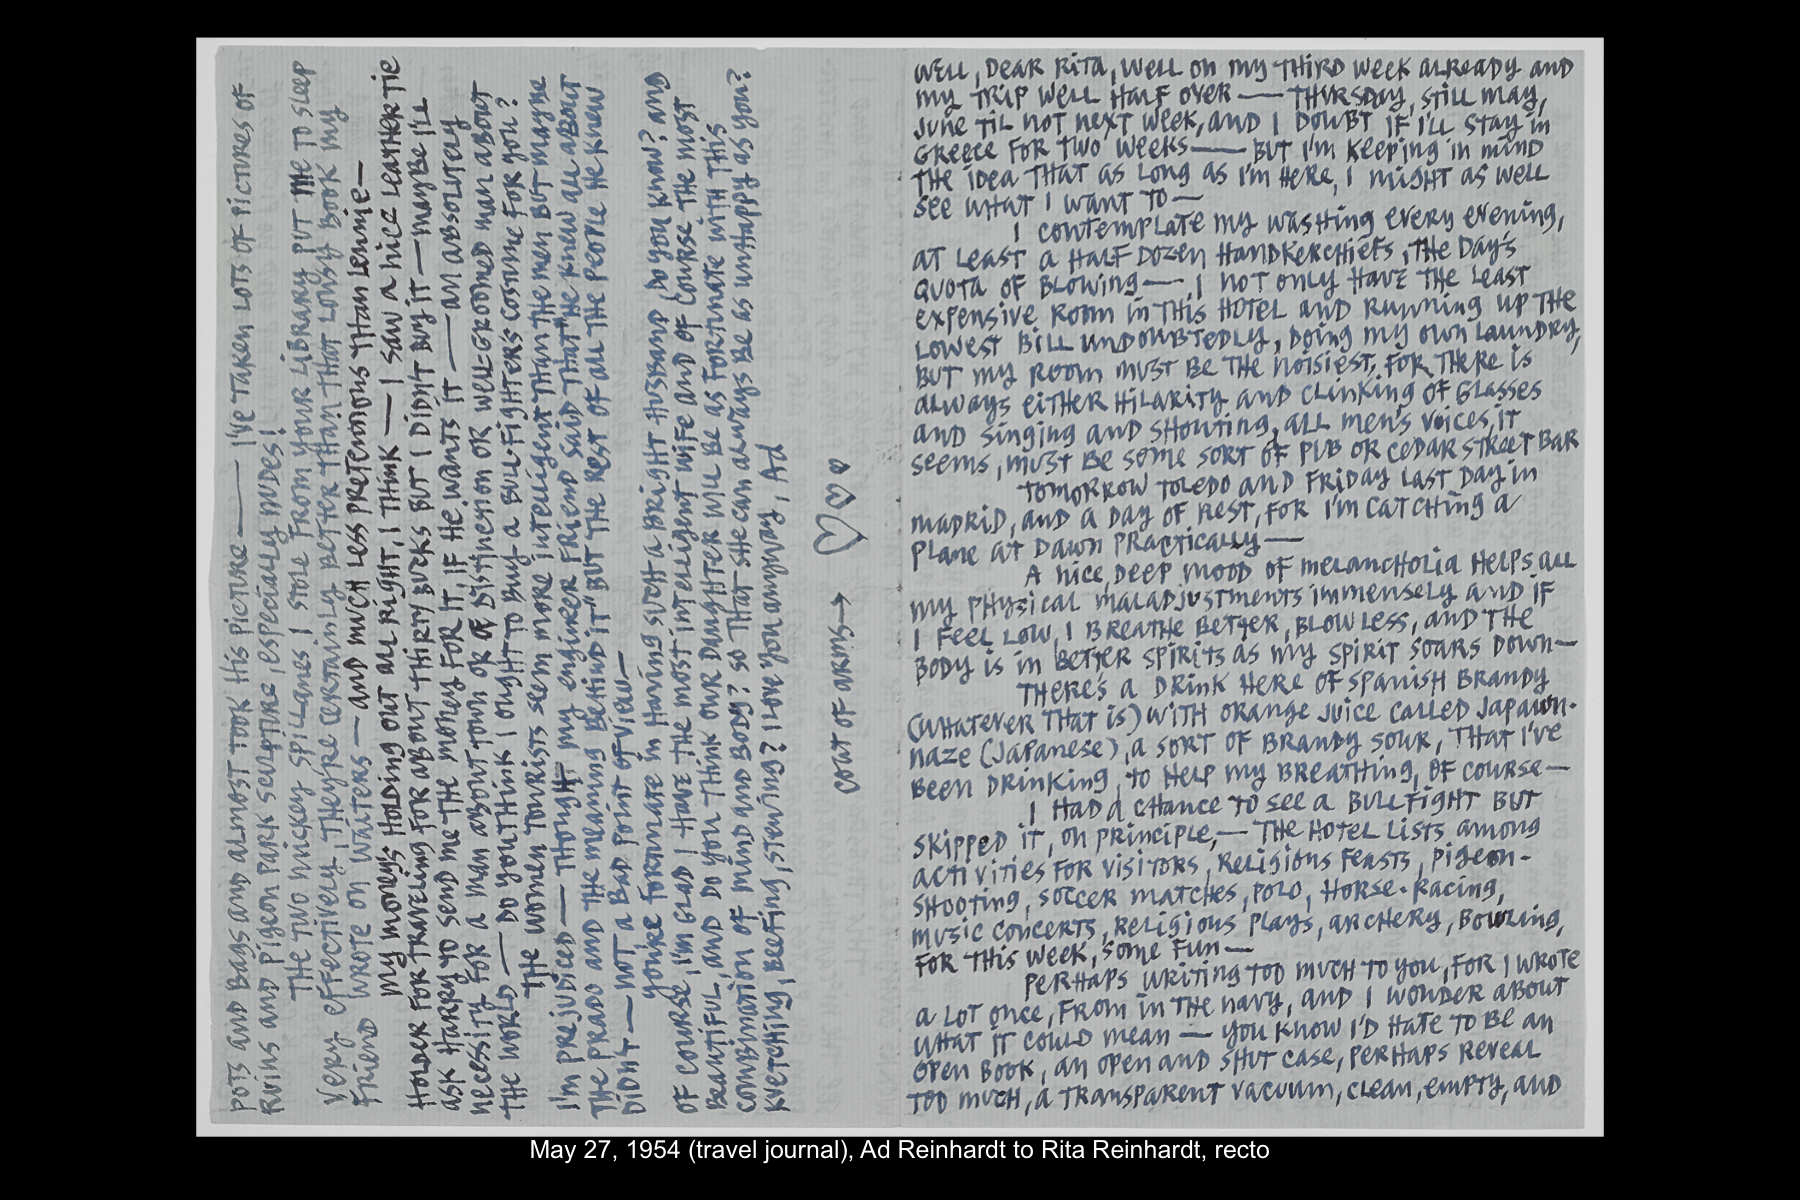 WELL, DEAR RITA, WELL ON MY THIRD WEEK ALREADY AND
MY TRIP WELL HALF OVER — THURSDAY, STILL MAY,
JUNE TIL NOT NEXT WEEK, AND I DOUBT IF I'LL STAY IN
GREECE FOR TWO WEEKS — BUT I'M KEEPING IN MIND
THE IDEA THAT AS LONG AS I'M HERE, I MIGHT AS WELL
SEE WHAT I WANT TO —
I CONTEMPLATE MY WASHING EVERY EVENING,
AT LEAST A HALF DOZEN HANDKERCHIEFS, THE DAY'S
QUOTA OF BLOWING — I NOT ONLY HAVE THE LEAST
EXPENSIVE ROOM IN THIS HOTEL AND RUNNING UP THE
LOWEST BILL UNDOUBTEDLY, DOING MY OWN LAUNDRY,
BUT MY ROOM MUST BE THE NOISIEST, FOR THERE IS
ALWAYS EITHER HILARITY AND CLINKING OF GLASSES
AND SINGING AND SHOUTING, ALL MEN'S VOICES, IT
SEEMS, MUST BE SOME SORT OF PUB OR CEDAR STREET BAR
TOMORROW TOLEDO AND FRIDAY LAST DAY IN
MADRID, AND A DAY OF REST, FOR I'M CATCHING A
PLANE AT DAWN PRACTICALLY —
A NICE DEEP MOOD OF MELANCHOLIA HELPS ALL
MY PHYSICAL MALADJUSTMENTS IMMENSELY AND IF
I FEEL LOW, I BREATHE BETTER, BLOW LESS, AND THE
BODY IS IN BETTER SPIRITS AS MY SPIRIT SOARS DOWN—
THERE'S A DRINK HERE OF SPANISH BRANDY
(WHATEVER THAT IS) WITH ORANGE JUICE CALLED JAPAWN-
NAZE (JAPANESE), A SORT OF BRANDY SOUR, THAT I'VE
BEEN DRINKING, TO HELP MY BREATHING, OF COURSE —
I HAD A CHANCE TO SEE A BULLFIGHT BUT
SKIPPED IT, ON PRINCIPLE, — THE HOTEL LISTS AMONG
ACTIVITIES FOR VISITORS, RELIGIOUS FEASTS, PIGEON-
SHOOTING, SOCCER MATCHES, POLO, HORSE-RACING,
MUSIC CONCERTS, RELIGIOUS PLAYS, ARCHERY, BOWLING,
FOR THIS WEEK, SOME FUN —
PERHAPS WRITING TOO MUCH TO YOU, FOR I WROTE
A LOT ONCE, FROM IN THE NAVY, AND I WONDER ABOUT
WHAT IT COULD MEAN — YOU KNOW I'D HATE TO BE AN
OPEN BOOK, AN OPEN AND SHUT CASE, PERHAPS REVEAL
TOO MUCH, A TRANSPARENT VACUUM, CLEAN, EMPTY, AND
POTS AND BAGS AND ALMOST TOOK HIS PICTURE — I'VE TAKEN LOTS OF PICTURES OF
RUINS AND PIGEON PARK SCULPTURE, ESPECIALLY NUDES!
THE TWO MICKEY SPILLANES I STOLE FROM YOUR LIBRARY PUT ME TO SLEEP
VERY EFFECTIVELY, THEY'RE CERTAINLY BETTER THAN THAT LOUSY BOOK MY
FRIEND WROTE ON WAITERS — AND MUCH LESS PRETENTIOUS THAN LENNIE —
MY MONEY'S HOLDING OUT ALL RIGHT, I THINK — I SAW A NICE LEATHER TIE
HOLDER FOR TRAVELING FOR ABOUT THIRTY BUCKS BUT I DIDN'T BUY IT — MAYBE I'LL
ASK HARRY TO SEND ME THE MONEY FOR IT, IF HE WANTS IT — AN ABSOLUTELY
NECESSITY FOR A MAN ABOUT TOWN OR OF DISTINCTION OR WELL-GROOMED MAN ABOUT
THE WORLD — DO YOU THINK I OUGHT TO BUY A BULL-FIGHTER'S COSTUME FOR YOU?
THE WOMEN TOURISTS SEEM MORE INTELLIGENT THAN THE MEN BUT MAYBE
I'M PREJUDICED — THOUGHT MY ENGINEER FRIEND SAID THAT "HE KNEW ALL ABOUT
THE PRADO AND THE MEANING BEHIND IT" BUT THE REST OF ALL THE PEOPLE HE KNEW
DIDN'T — NOT A BAD POINT OF VIEW —
YOU'RE FORTUNATE IN HAVING SUCH A BRIGHT HUSBAND, DO YOU KNOW? AND
OF COURSE, I'M GLAD I HAVE THE MOST INTELLIGENT WIFE AND OF COURSE THE MOST
BEAUTIFUL, AND DO YOU THINK OUR DAUGHTER WILL BE AS FORTUNATE WITH THIS
COMBINATION OF MIND AND BODY? SO THAT SHE CAN ALWAYS BE AS UNHAPPY AS YOU?
KVETCHING, BEEFING, STEWING? I LOVE YOU ANYWAY, AD
COAT OF ARMS →
May 27, 1954 (travel journal), Ad Reinhardt to Rita Reinhardt, recto